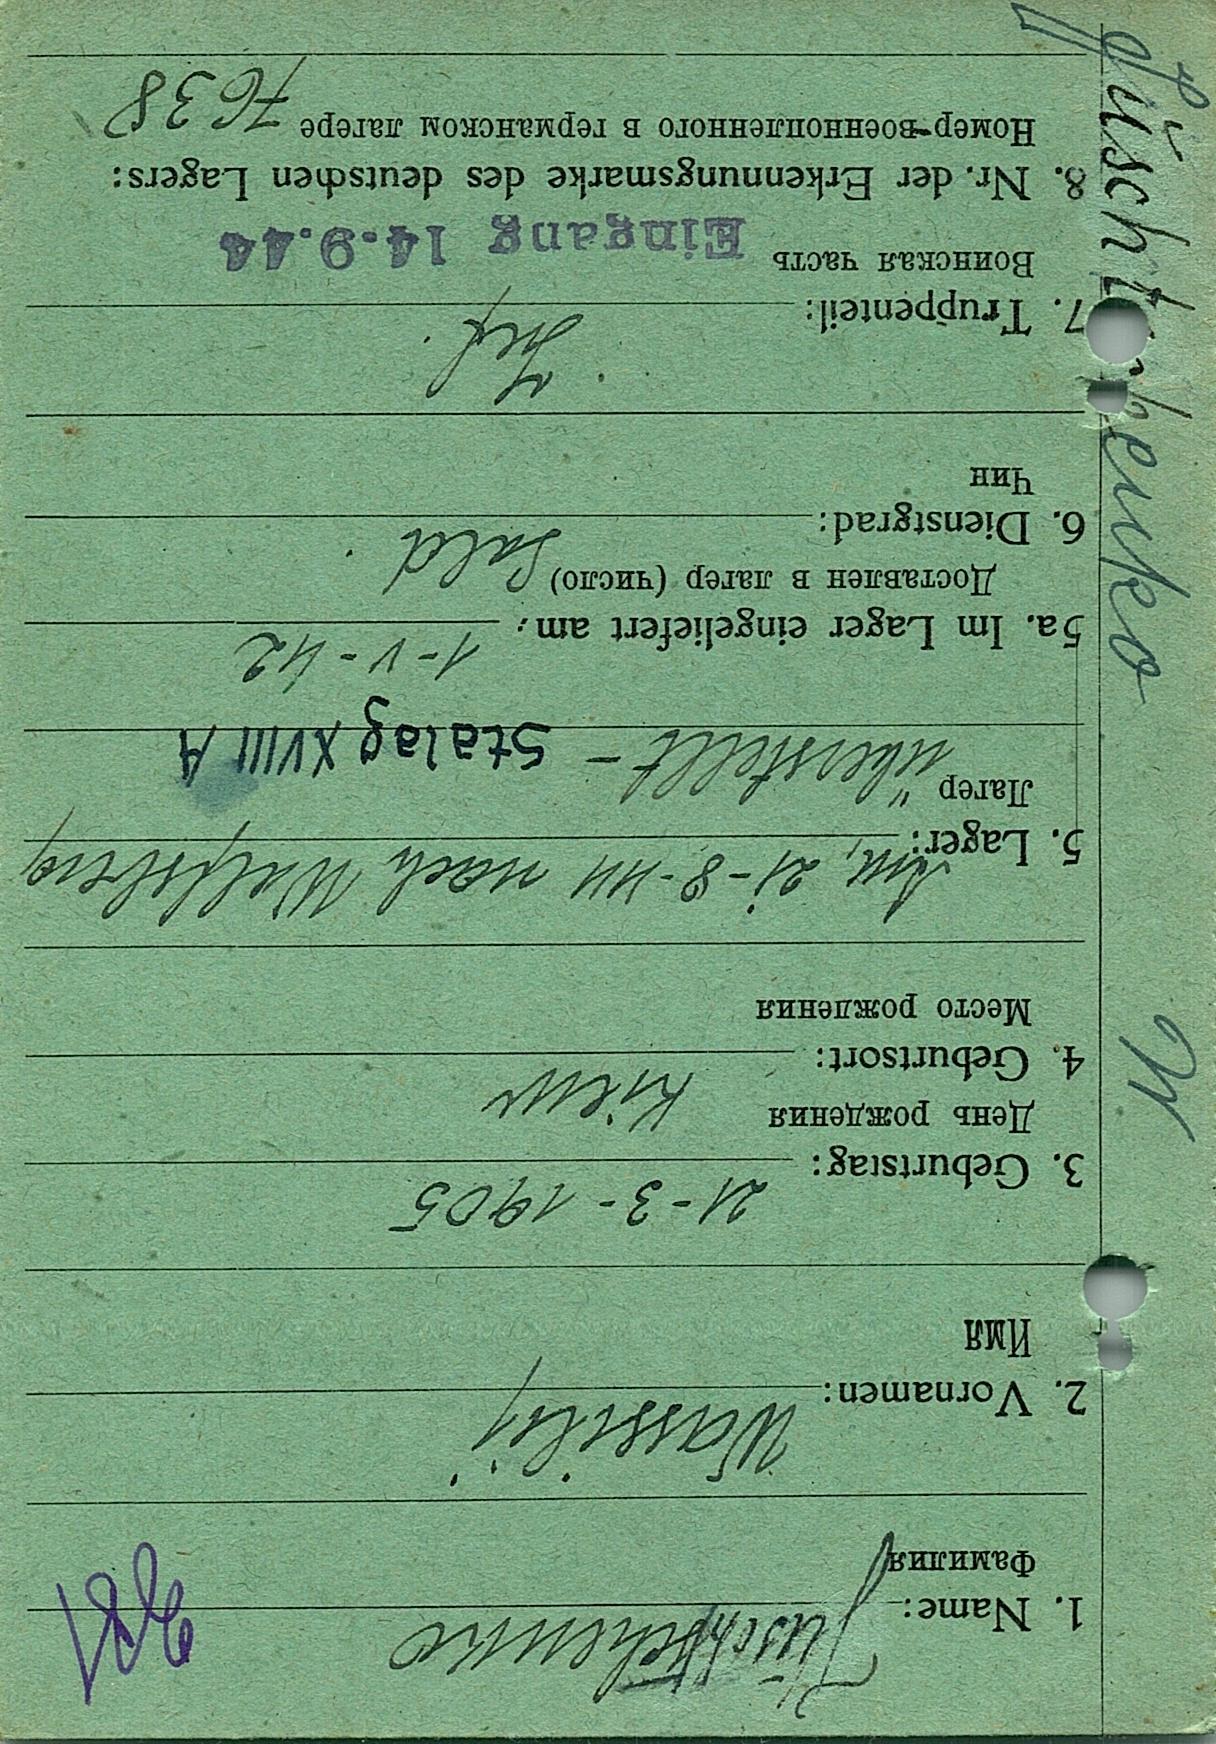 1. Name: Jüschtschenko
Фамилия
2. Vornamen: Wassilij
Имя
3. Geburtstag: 21-3-1905
День рождения
4. Geburtsort: Kiew
Место рождения
5. Lager: Am, 21-8-44 nach Wolfsberg
Лагер überstellt - Stalag XVIII A
5a. Im Lager eingeliefert am: 1-V-42
Доставлен в лагер (число)
6. Dienstgrad: Sold.
Чин
7. Truppenteil: Inf.
Воинская часть Eingang 14.9.44
8. Nr. der Erkennungsmarke des deutschen Lagers:
Номер военнопленного в германском лагере 7638
W